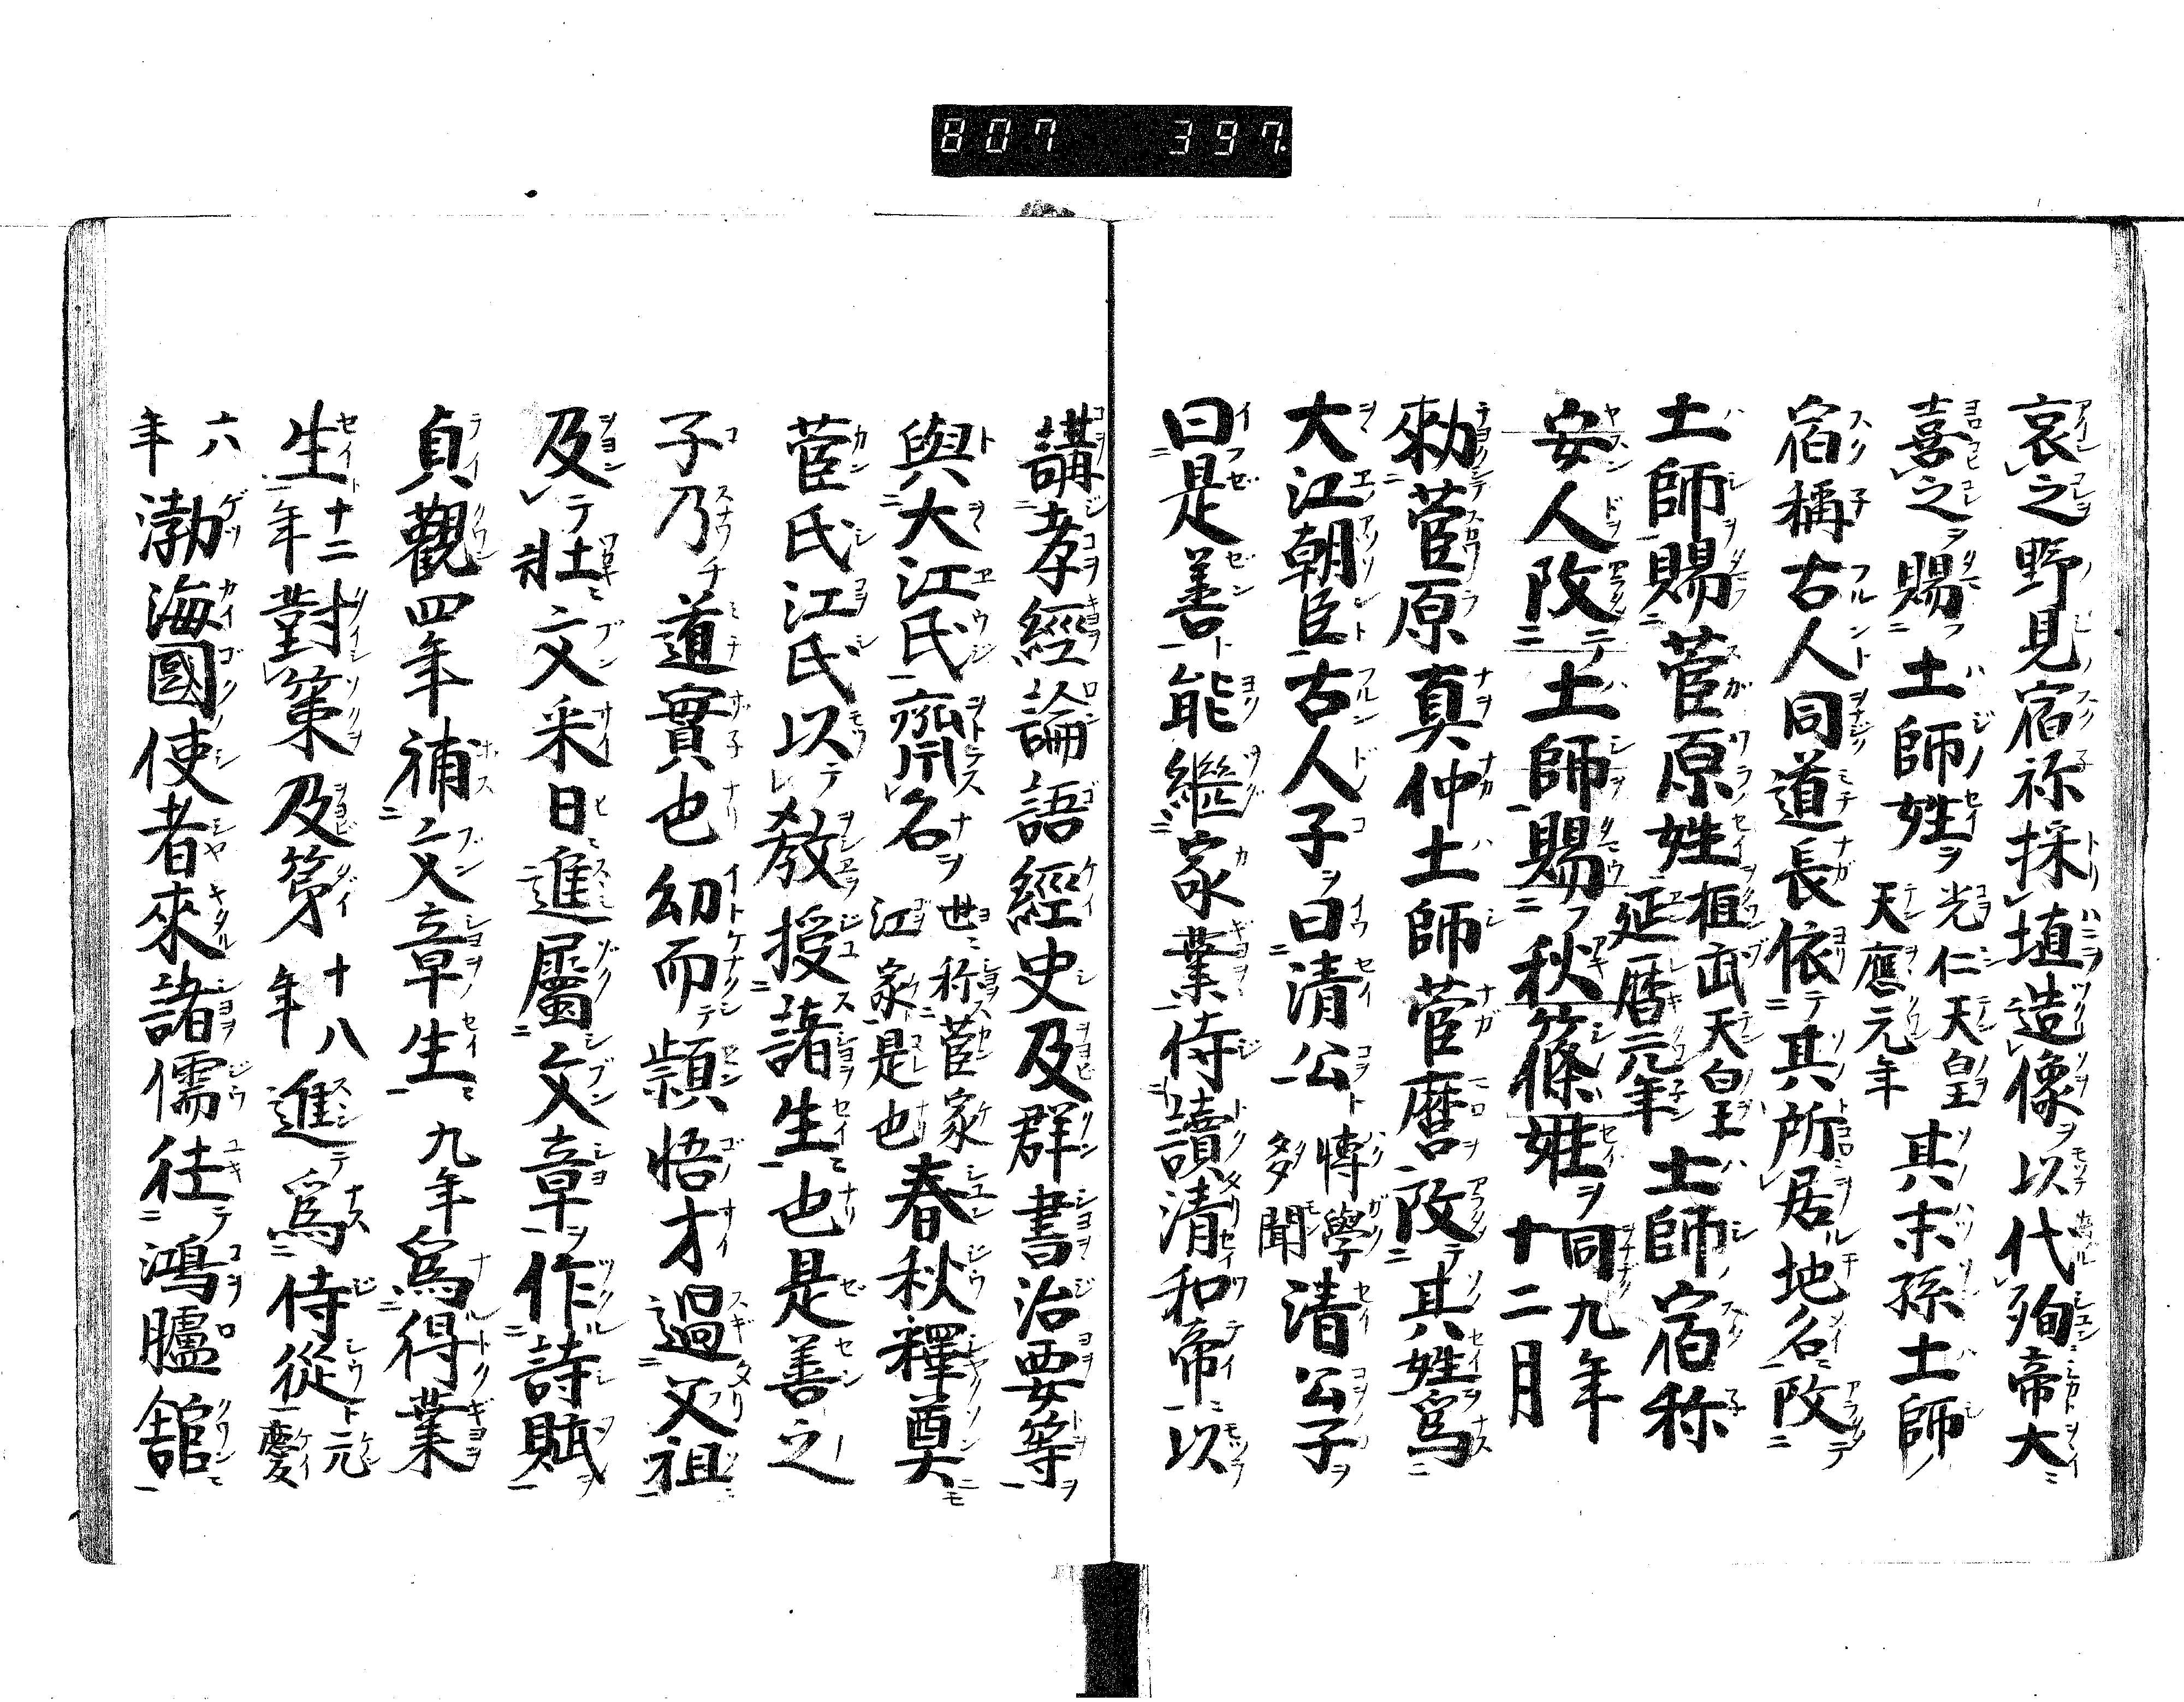 807 397.
哀之野見宿祢採埴造像以代殉帝大
喜之賜土師姓光仁天皇天應元年其末孫土師
宿稱古人同道長依其所居地名改
土師賜菅原姓桓武天皇延暦元年土師宿称
安人改土師賜秋篠姓同九年十二月
勅菅原真仲土師菅麿改其姓爲
大江朝臣古人子曰清公博學多聞清公子
曰是善能繼家業侍讀清和帝以
講孝經論語經史及群書治要等
與大江氏齊名世称菅家江家是也春秋釋奠
菅氏江氏以教授諸生也是善之
子乃道實也幼而頴悟才過父祖
及壯文采日進屬文章作詩賦
貞觀四年補文章生九年爲得業
生十二年對策及第十八年進爲侍從元慶
六年渤海國使者來諸儒往鴻臚舘